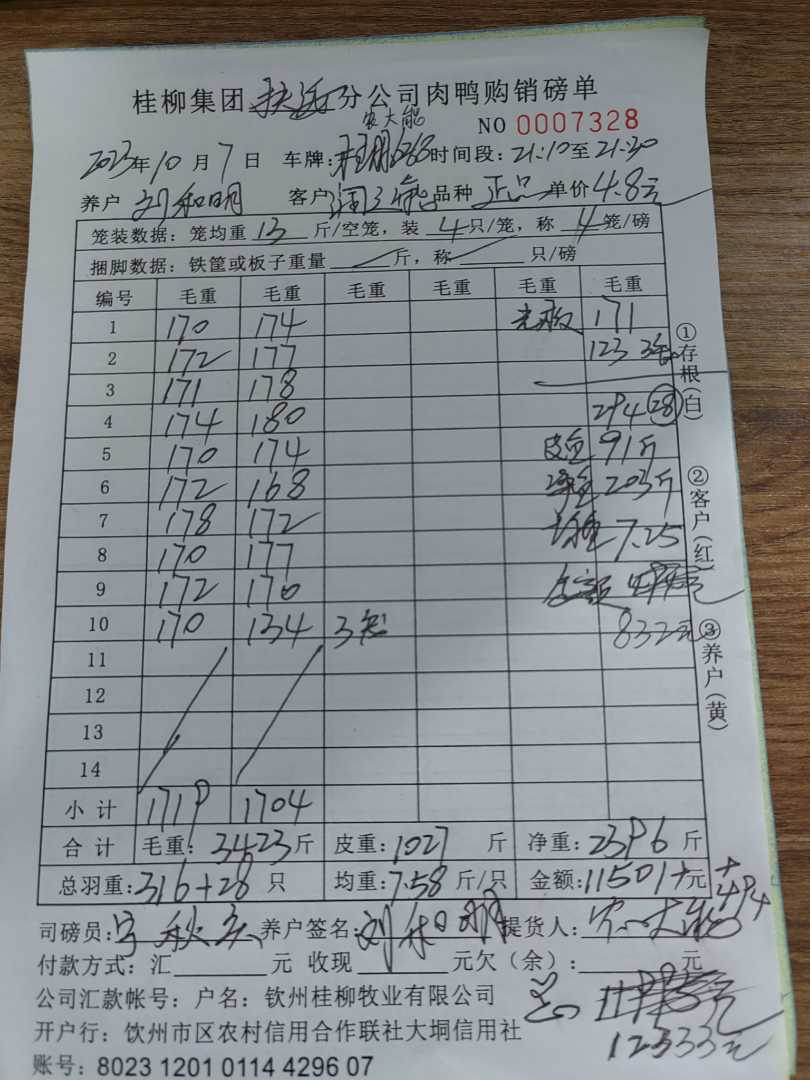 桂柳集团 分公司肉鸭购销磅单
农大能
NO 0007328
2023年10月7日 车牌: 时间段:21:10至21:30
养户 刘和明 客户 品种 正品 单价4.8元
笼装数据:笼均重 13 斤/空笼,装 4 只/笼,称 4 笼/磅
捆脚数据:铁筐或板子重量 斤,称 只/磅
编号 毛重 毛重 毛重 毛重 毛重 毛重
1 170 174 171
2 172 177 123
3 171 178
4 174 180 294 28
5 170 174 皮重 91斤
6 172 168 净重 203斤
7 178 172 均重 7.25
8 170 177
9 172 170
10 170 134 3笼 832元
11
12
13
14
小计 1719 1704
合计 毛重:3423斤 皮重:1027斤 净重:2396斤
总羽重:316+28只 均重:7.58斤/只 金额:11501元
司磅员: 养户签名:刘和明 提货人:
付款方式:汇 元 收现 元欠(余): 元
公司汇款帐号:户名:钦州桂柳牧业有限公司
开户行:钦州市区农村信用合作联社大垌信用社
12333元
账号:8023 1201 0114 4296 07
①存根(白)
②客户(红)
③养户(黄)